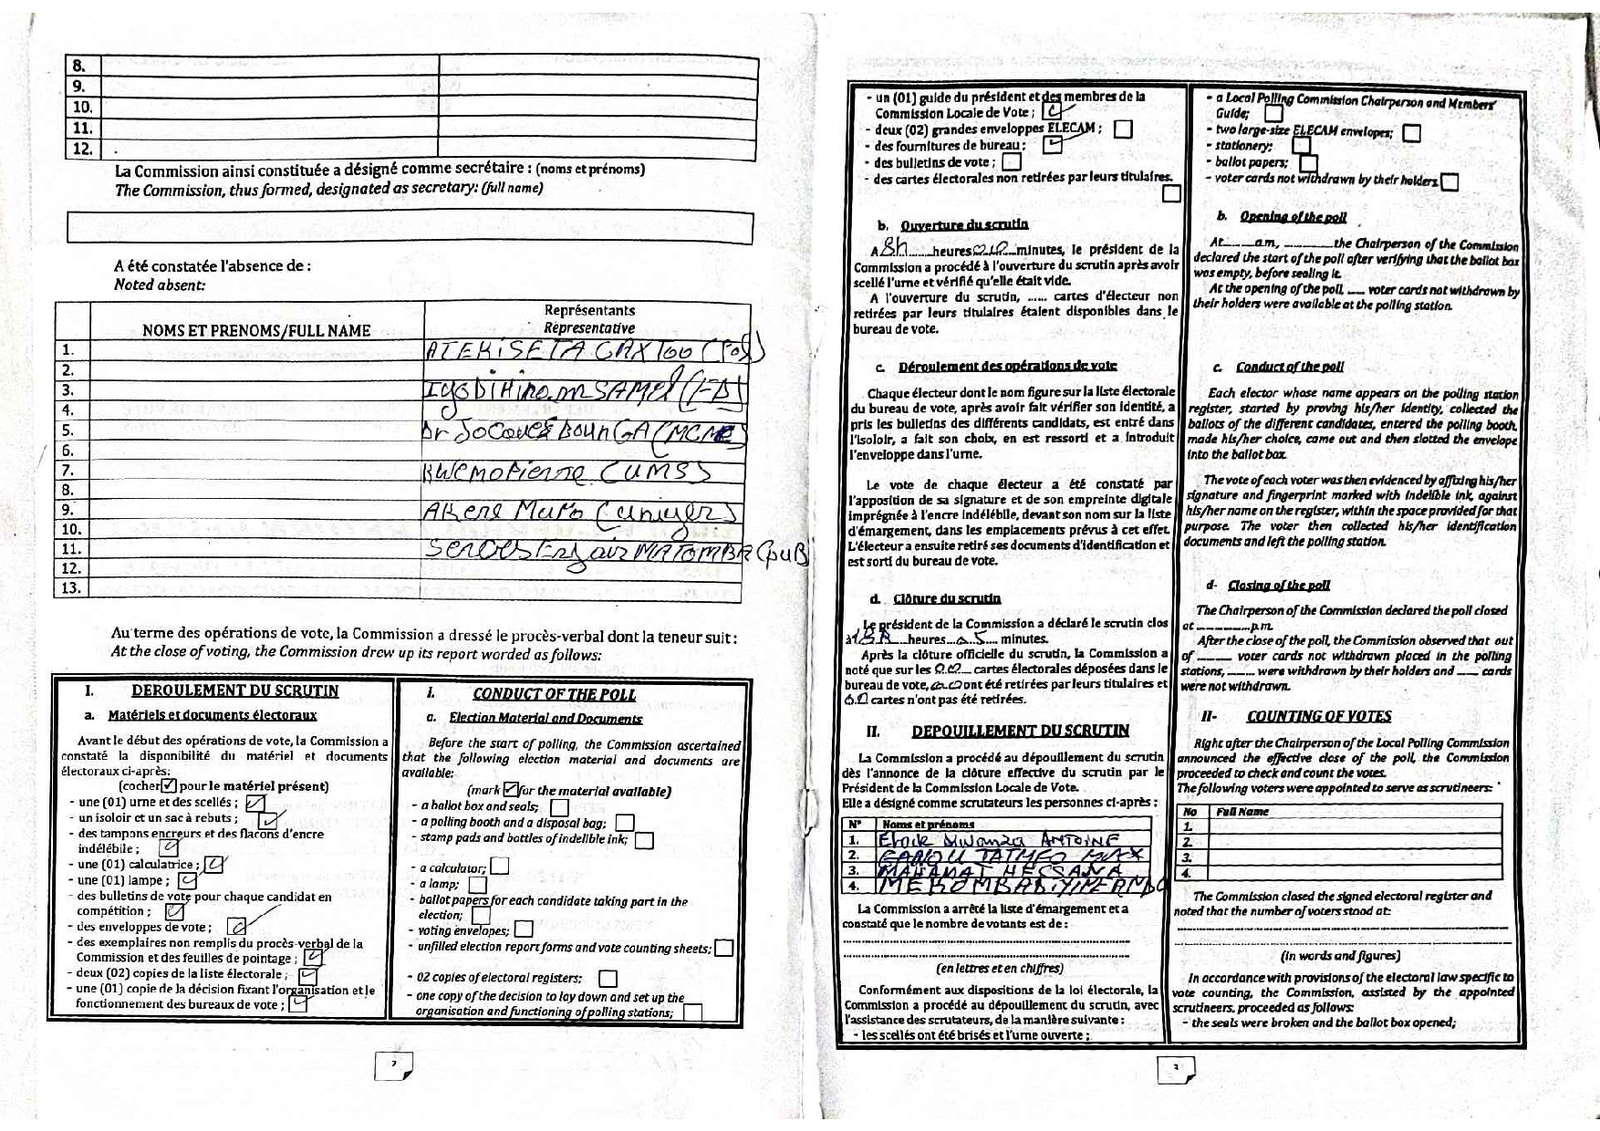 8.
9.
10.
11.
12.
La Commission ainsi constituée a désigné comme secrétaire : (noms et prénoms)
The Commission, thus formed, designated as secretary: (full name)
A été constatée l'absence de :
Noted absent:
NOMS ET PRENOMS/FULL NAME
Représentants
Représentative
1. ATEKISETA CAXTOO
2.
3. SAMUel
4.
5. Dr JaCques BounGA (MCNC
6.
7. KWemo Pierre (UMS)
8.
9. AKere Muna (univers)
10.
11. MATOMBA (PURS
12.
13.
Au terme des opérations de vote, la Commission a dressé le procès-verbal dont la teneur suit :
At the close of voting, the Commission drew up its report worded as follows:
I. DEROULEMENT DU SCRUTIN
a. Matériels et documents électoraux
Avant le début des opérations de vote, la Commission a
constaté la disponibilité du matériel et documents
électoraux ci-après:
(cocher pour le matériel présent)
- une (01) urne et des scellés ;
- un isoloir et un sac à rebuts ;
- des tampons encreurs et des flacons d'encre
indélébile ;
- une (01) calculatrice ;
- une (01) lampe ;
- des bulletins de vote pour chaque candidat en
compétition ;
- des enveloppes de vote ;
- des exemplaires non remplis du procès-verbal de la
Commission et des feuilles de pointage ;
- deux (02) copies de la liste électorale ;
- une (01) copie de la décision fixant l'organisation et le
fonctionnement des bureaux de vote ;
I. CONDUCT OF THE POLL
a. Election Material and Documents
Before the start of polling, the Commission ascertained
that the following election material and documents are
available:
(mark for the material available)
- a ballot box and seals;
- a polling booth and a disposal bag;
- stamp pads and bottles of indelible ink;
- a calculator;
- a lamp;
- ballot papers for each candidate taking part in the
election;
- voting envelopes;
- unfilled election report forms and vote counting sheets;
- 02 copies of electoral registers;
- one copy of the decision to lay down and set up the
organisation and functioning of polling stations;
2
- un (01) guide du président et des membres de la
Commission Locale de Vote ;
- deux (02) grandes enveloppes ELECAM ;
- des fournitures de bureau ;
- des bulletins de vote ;
- des cartes électorales non retirées par leurs titulaires.
b. Ouverture du scrutin
A 8h heures minutes, le président de la
Commission a procédé à l'ouverture du scrutin après avoir
scellé l'urne et vérifié qu'elle était vide.
A l'ouverture du scrutin, ...... cartes d'électeur non
retirées par leurs titulaires étaient disponibles dans le
bureau de vote.
c. Déroulement des opérations de vote
Chaque électeur dont le nom figure sur la liste électorale
du bureau de vote, après avoir fait vérifier son identité, a
pris les bulletins des différents candidats, est entré dans
l'isoloir, a fait son choix, en est ressorti et a introduit
l'enveloppe dans l'urne.
Le vote de chaque électeur a été constaté par
l'apposition de sa signature et de son empreinte digitale
imprégnée à l'encre indélébile, devant son nom sur la liste
d'émargement, dans les emplacements prévus à cet effet.
L'électeur a ensuite retiré ses documents d'identification et
est sorti du bureau de vote.
d. Clôture du scrutin
Le président de la Commission a déclaré le scrutin clos
à heures minutes.
Après la clôture officielle du scrutin, la Commission a
noté que sur les cartes électorales déposées dans le
bureau de vote, ont été retirées par leurs titulaires et
cartes n'ont pas été retirées.
II. DEPOUILLEMENT DU SCRUTIN
La Commission a procédé au dépouillement du scrutin
dès l'annonce de la clôture effective du scrutin par le
Président de la Commission Locale de Vote.
Elle a désigné comme scrutateurs les personnes ci-après :
N° Noms et prénoms
1. ANTOINE
2. MAX
3. MAHAMAT HESSANA
4.
La Commission a arrêté la liste d'émargement et a
constaté que le nombre de votants est de :
(en lettres et en chiffres)
Conformément aux dispositions de la loi électorale, la
Commission a procédé au dépouillement du scrutin, avec
l'assistance des scrutateurs, de la manière suivante :
- les scellés ont été brisés et l'urne ouverte ;
- a Local Polling Commission Chairperson and Members'
Guide;
- two large-size ELECAM envelopes;
- stationery;
- ballot papers;
- voter cards not withdrawn by their holders.
b. Opening of the poll
At......am, ..........the Chairperson of the Commission
declared the start of the poll after verifying that the ballot box
was empty, before sealing it.
At the opening of the poll, ..... voter cards not withdrawn by
their holders were available at the polling station.
c. Conduct of the poll
Each elector whose name appears on the polling station
register, started by proving his/her identity, collected the
ballots of the different candidates, entered the polling booth,
made his/her choice, came out and then slotted the envelope
into the ballot box.
The vote of each voter was then evidenced by affixing his/her
signature and fingerprint marked with indelible ink, against
his/her name on the register, within the space provided for that
purpose. The voter then collected his/her identification
documents and left the polling station.
d- Closing of the poll
The Chairperson of the Commission declared the poll closed
at ............p.m.
After the close of the poll, the Commission observed that out
of ........ voter cards not withdrawn placed in the polling
stations, ...... were withdrawn by their holders and ..... cards
were not withdrawn.
II- COUNTING OF VOTES
Right after the Chairperson of the Local Polling Commission
announced the effective close of the poll, the Commission
proceeded to check and count the votes.
The following voters were appointed to serve as scrutineers:
No Full Name
1.
2.
3.
4.
The Commission closed the signed electoral register and
noted that the number of voters stood at:
(in words and figures)
In accordance with provisions of the electoral law specific to
vote counting, the Commission, assisted by the appointed
scrutineers, proceeded as follows:
- the seals were broken and the ballot box opened;
3